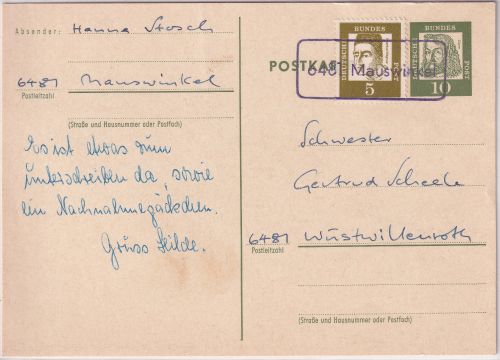 Absender: Hanna Stosch
6481 Mauswinkel
Postleitzahl
(Straße und Hausnummer oder Postfach)
Es ist etwas zum
unterschreiben da, sowie
ein Nachnahmepäckchen.
Gruss Hilde.
POSTKARTE
DEUTSCHE BUNDESPOST
5
DEUTSCHE BUNDESPOST
10
6481 Mauswinkel
Schwester
Gertrud Scheele
6481 Wüstwillenroth
Postleitzahl
(Straße und Hausnummer oder Postfach)